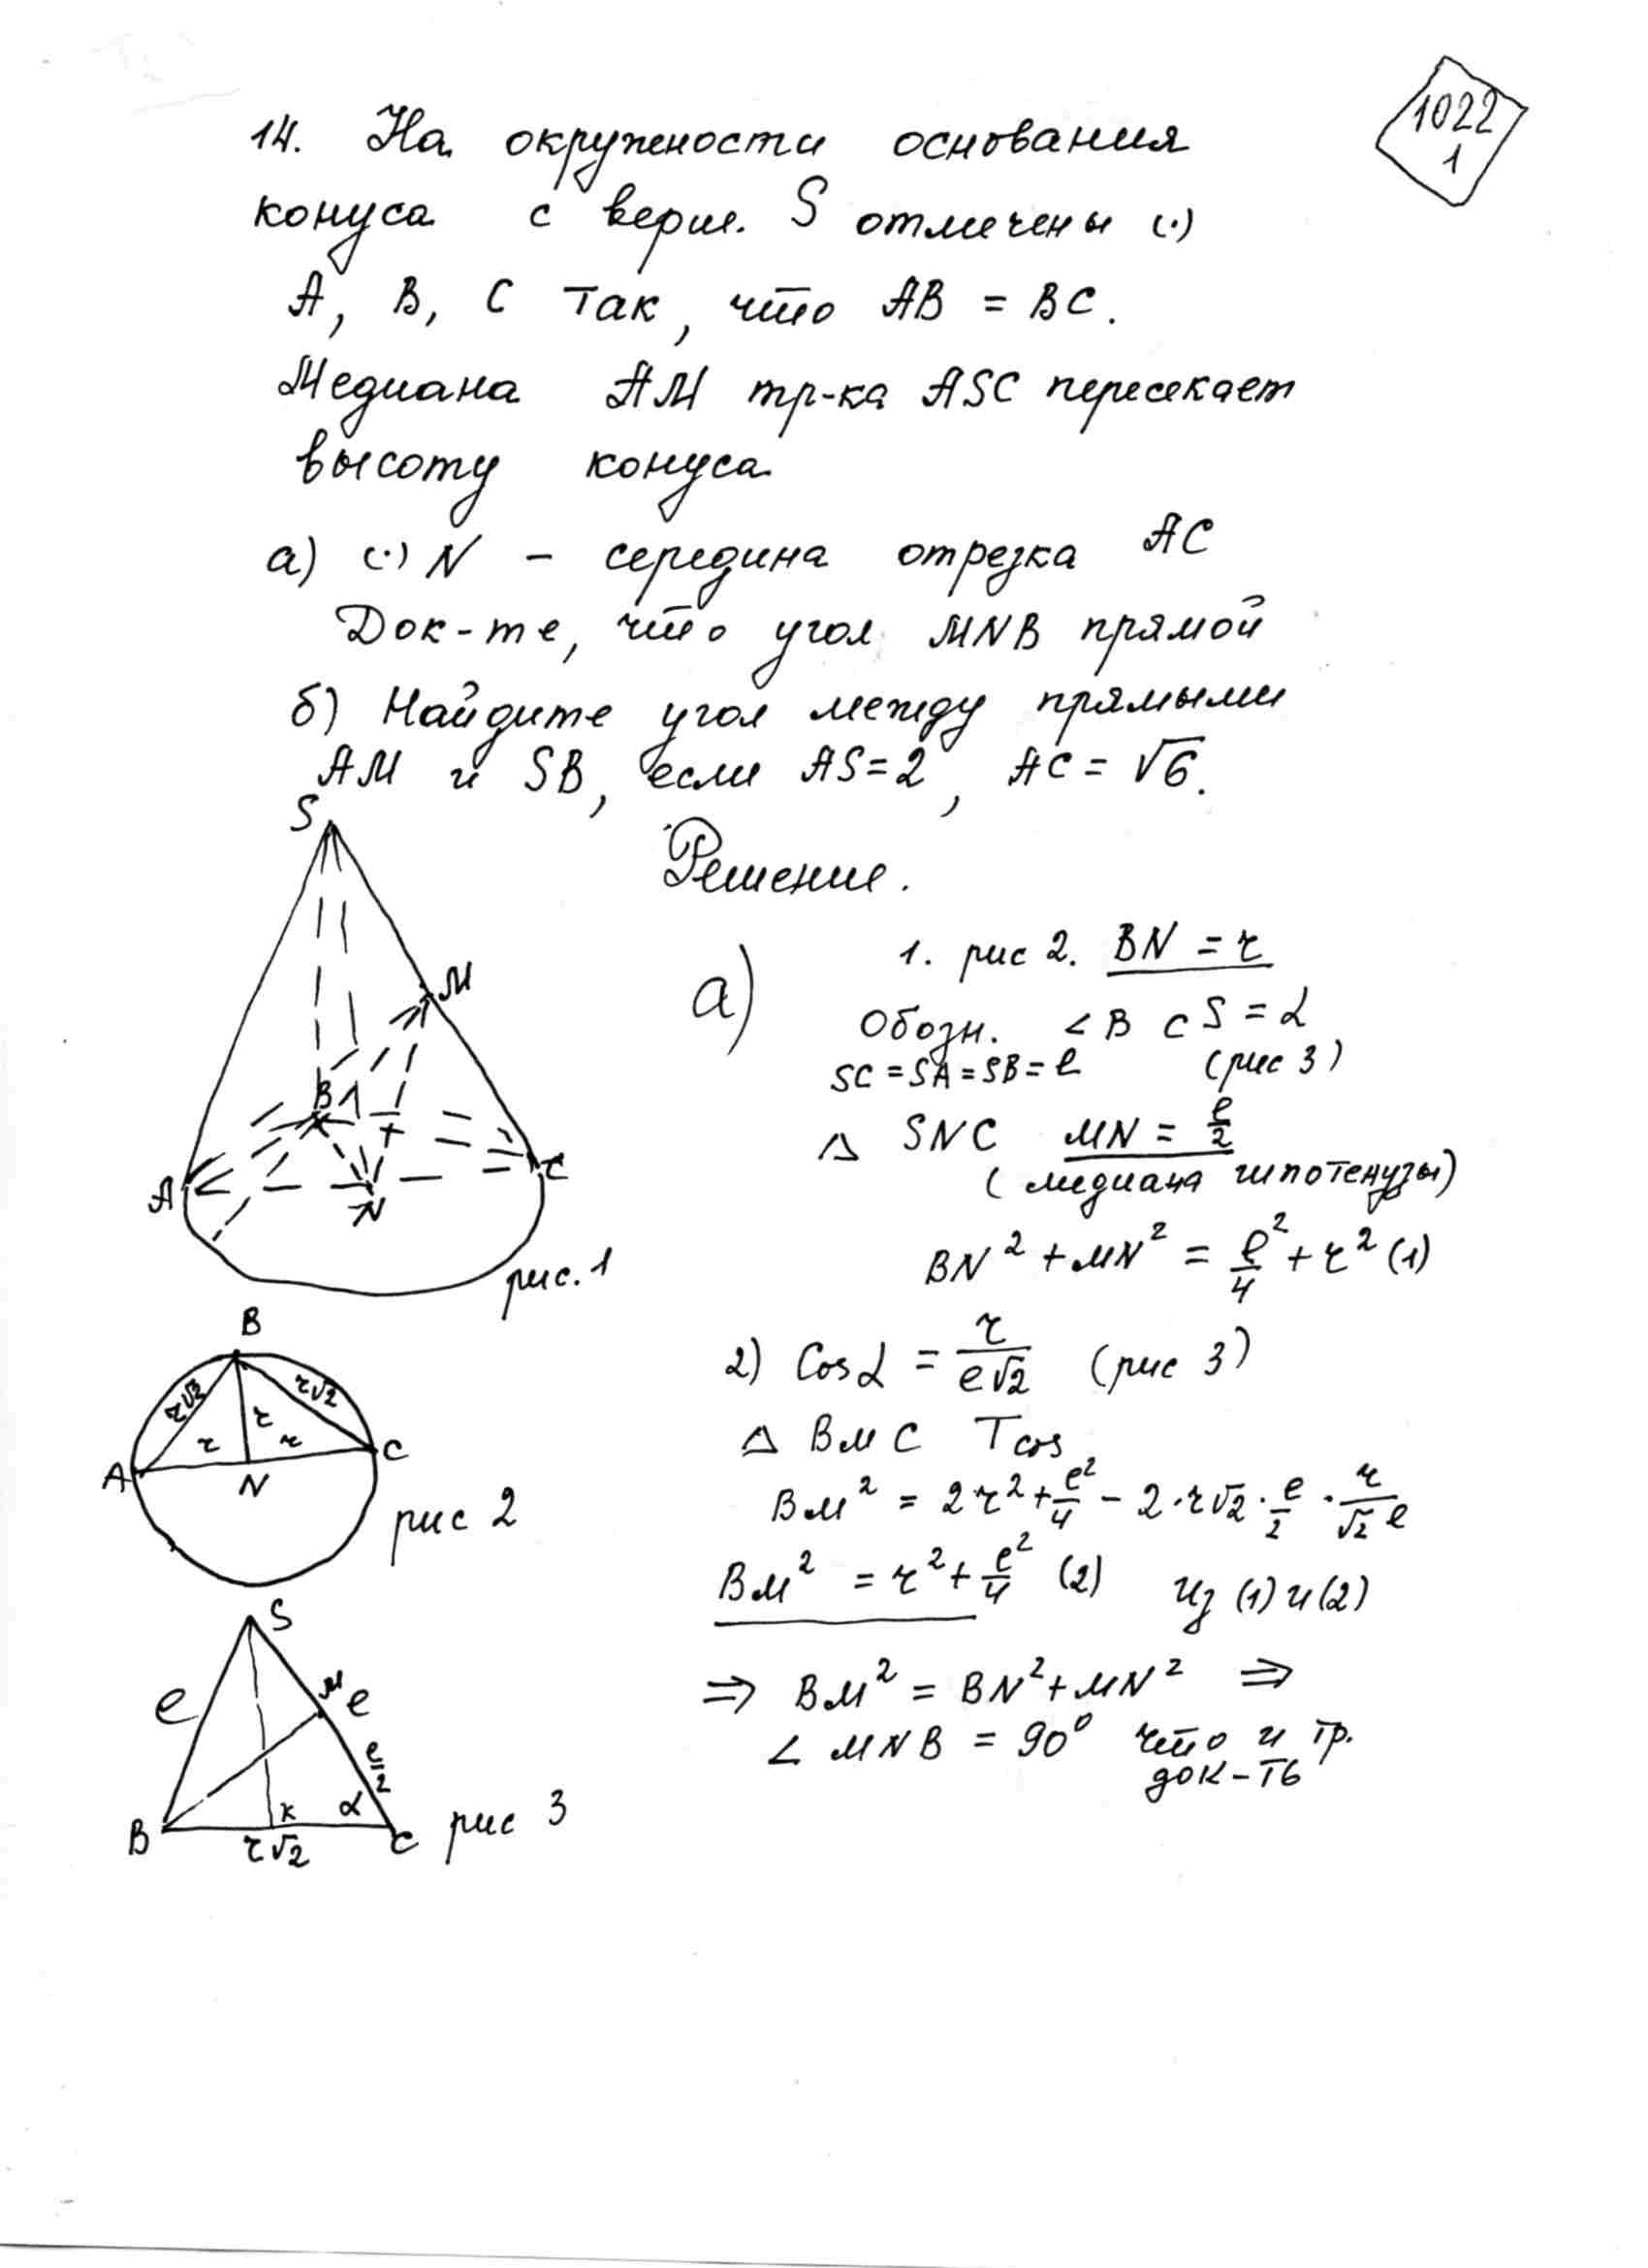 1022
1
14. На окружности основания
конуса с верш. S отмечены (·)
A, B, C так, что AB = BC.
Медиана AM тр-ка ASC пересекает
высоту конуса
а) (·) N - середина отрезка AC
Док-те, что угол MNB прямой
б) Найдите угол между прямыми
AM и SB, если AS=2, AC = √6.
Решение.
S
M
B
A
N
C
рис. 1
а)
1. рис 2. BN = r
Обозн. ∠BCS = α
SC = SA = SB = l (рис 3)
△ SNC MN = l/2
(медиана гипотенузы)
BN² + MN² = l²/4 + r² (1)
B
r√2 r√2
r
r r
A N C
рис 2
2) Cosα = r/(l√2) (рис 3)
△ BMC Tcos
BM² = 2r² + l²/4 - 2·r√2·l/2·r/(√2 l)
BM² = r² + l²/4 (2) Из (1) и (2)
⇒ BM² = BN² + MN² ⇒
∠ MNB = 90° что и тр.
док-ть
S
M
l l
l/2
K α
B r√2 C
рис 3